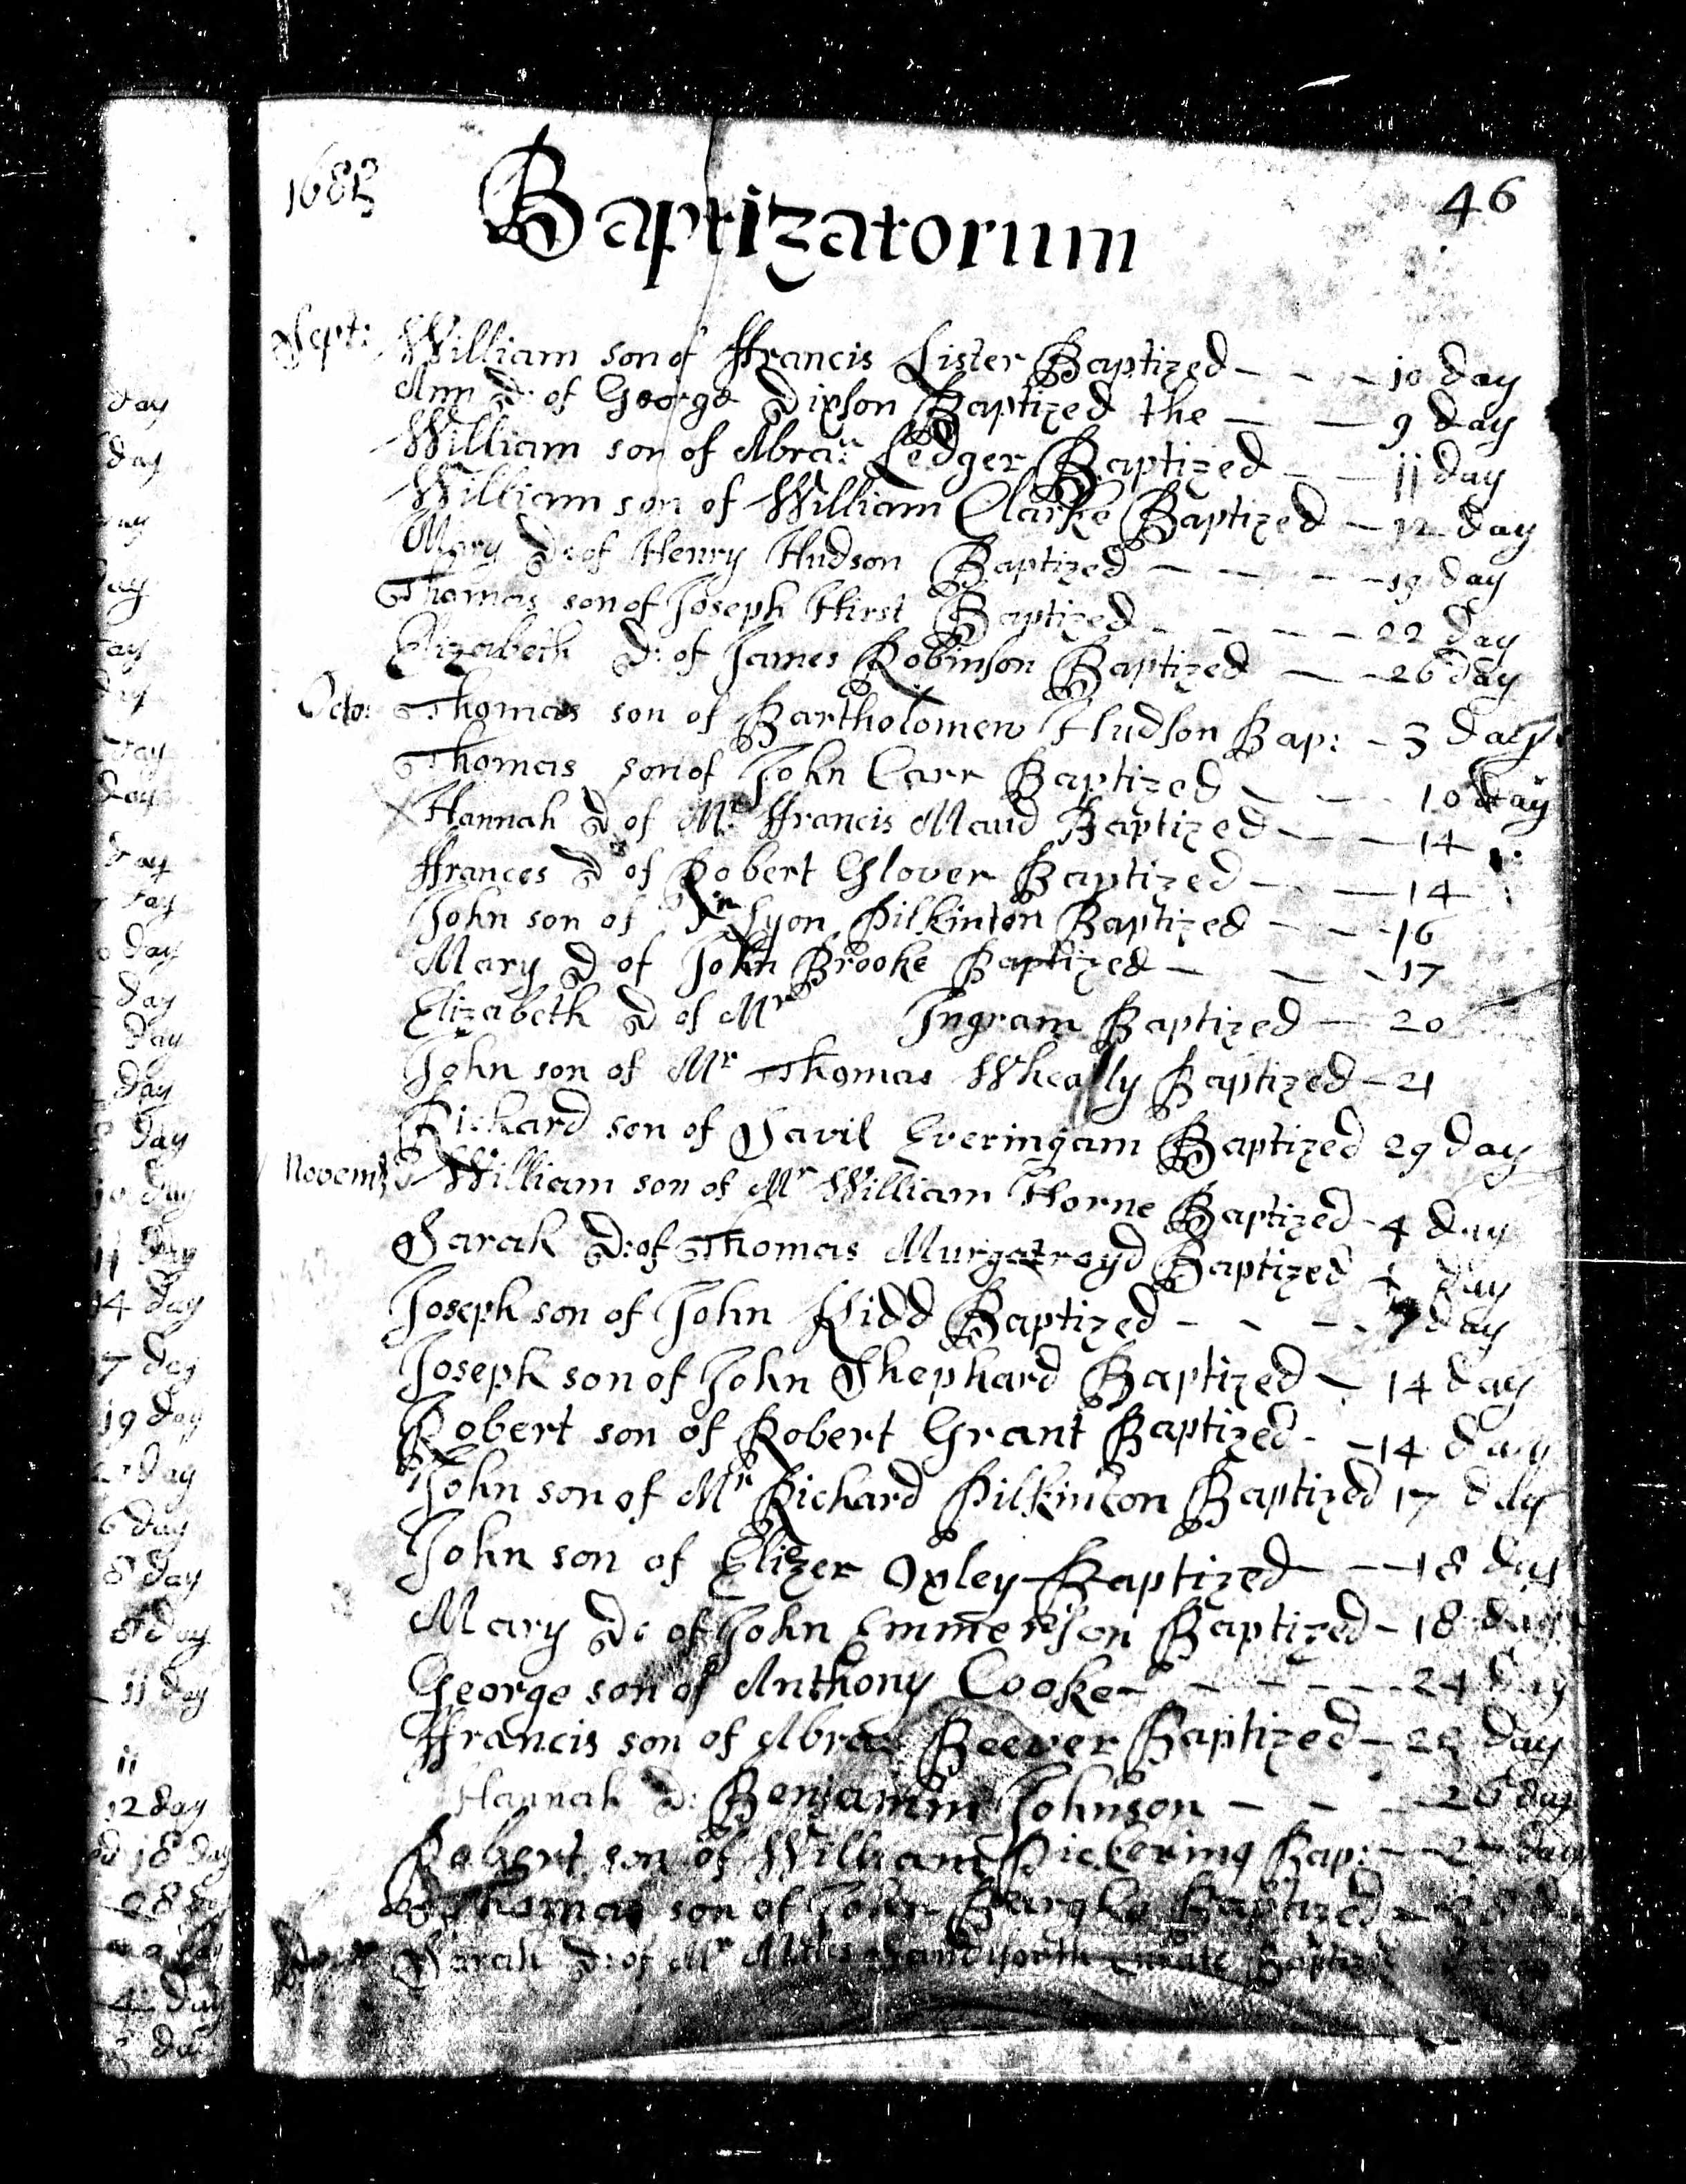 day
day
day
day
day
day
day
day
day
day
day
day
day
day
day
10 day
11 day
14 day
7 day
19 day
day
6 day
8 day
8 day
11 day
11
12 day
18 day
28
4 day
day
1683
Baptizatorum
46
Sept: William son of ffrancis Lister Baptized - - - 10 day
Ann d: of George Dixson Baptized the - - 9 day
William son of Abra: Ledger Baptized - - 11 day
William son of William Clarke Baptized - 12 day
Mary d: of Henry Hudson Baptized - - - - 19 day
Thomas son of Joseph Hirst Baptized - - - - 22 day
Elizabeth d: of James Robinson Baptized - - 26 day
Octo: Thomas son of Bartholomew Hudson Bap: - 3 day
Thomas son of John Carr Baptized - - - 10 day
Hannah d of Mr ffrancis Maud Baptized - - 14
ffrances d of Robert Glover Baptized - - 14
John son of Lyon Pilkinton Baptized - - - 16
Mary d of John Brooke Baptized - - - 17
Elizabeth d of Mr Ingram Baptized - 20
John son of Mr Thomas Baptized - 21
Richard son of Savil Everingam Baptized 29 day
Novemb William son of Mr William Horne Baptized - 4 day
Sarah d: of Thomas Murgatroyd Baptized day
Joseph son of John Kidd Baptized - - - - 7 day
Joseph son of John Shephard Baptized - 14 day
Robert son of Robert Grant Baptized - - 14 day
John son of Mr Richard Pilkinton Baptized 17 day
John son of Elizer Oxley Baptized - - 18 day
Mary d: of John Emmerson Baptized - 18 day
George son of Anthony Cooke - - - - - 24 day
ffrancis son of Abra: Beever Baptized - day
Hannah d: Benjamin Johnson - - - 26 day
Robert son of William Pickering Bap: - - day
Thomas son of John Baptized
Sarah d: of Mr Baptized